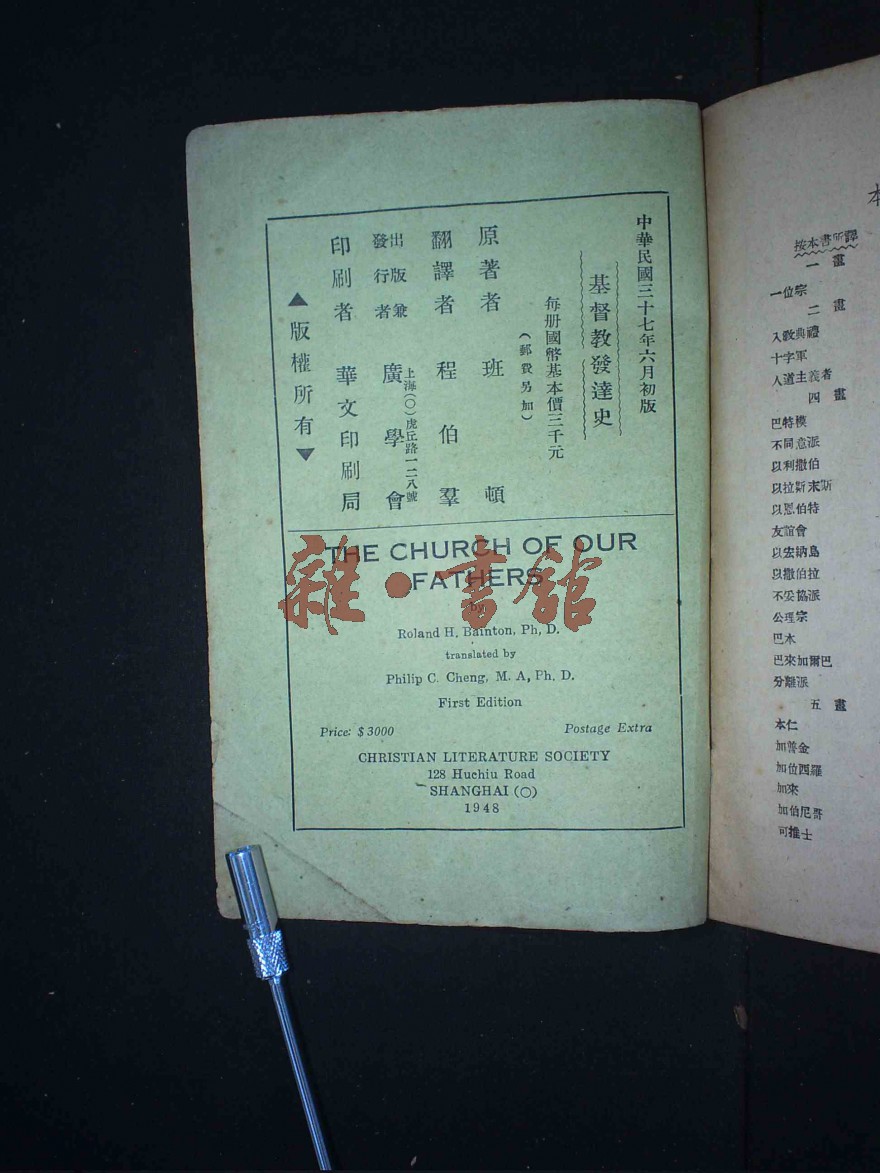 中華民國三十七年六月初版
基督教發達史
每册國幣基本價三千元
(郵費另加)
原著者 班頓
翻譯者 程伯羣
出版兼發行者 廣學會
上海(〇)虎丘路一二八號
印刷者 華文印刷局
▲版權所有▼
THE CHURCH OF OUR
FATHERS
by
Roland H. Bainton, Ph, D.
translated by
Philip C. Cheng, M. A, Ph. D.
First Edition
Price: $ 3000 Postage Extra
CHRISTIAN LITERATURE SOCIETY
128 Huchiu Road
SHANGHAI (〇)
1948
雜·書館
本
按本書所譯
一畫
一位宗
二畫
入敎典禮
十字軍
人道主義者
四畫
巴特模
不同意派
以利撒伯
以拉斯末斯
以恩伯特
友誼會
以宏納島
以撒伯拉
不妥協派
公理宗
巴木
巴來加爾巴
分離派
五畫
本仁
加普金
加位西羅
加來
加伯尼哥
可推士